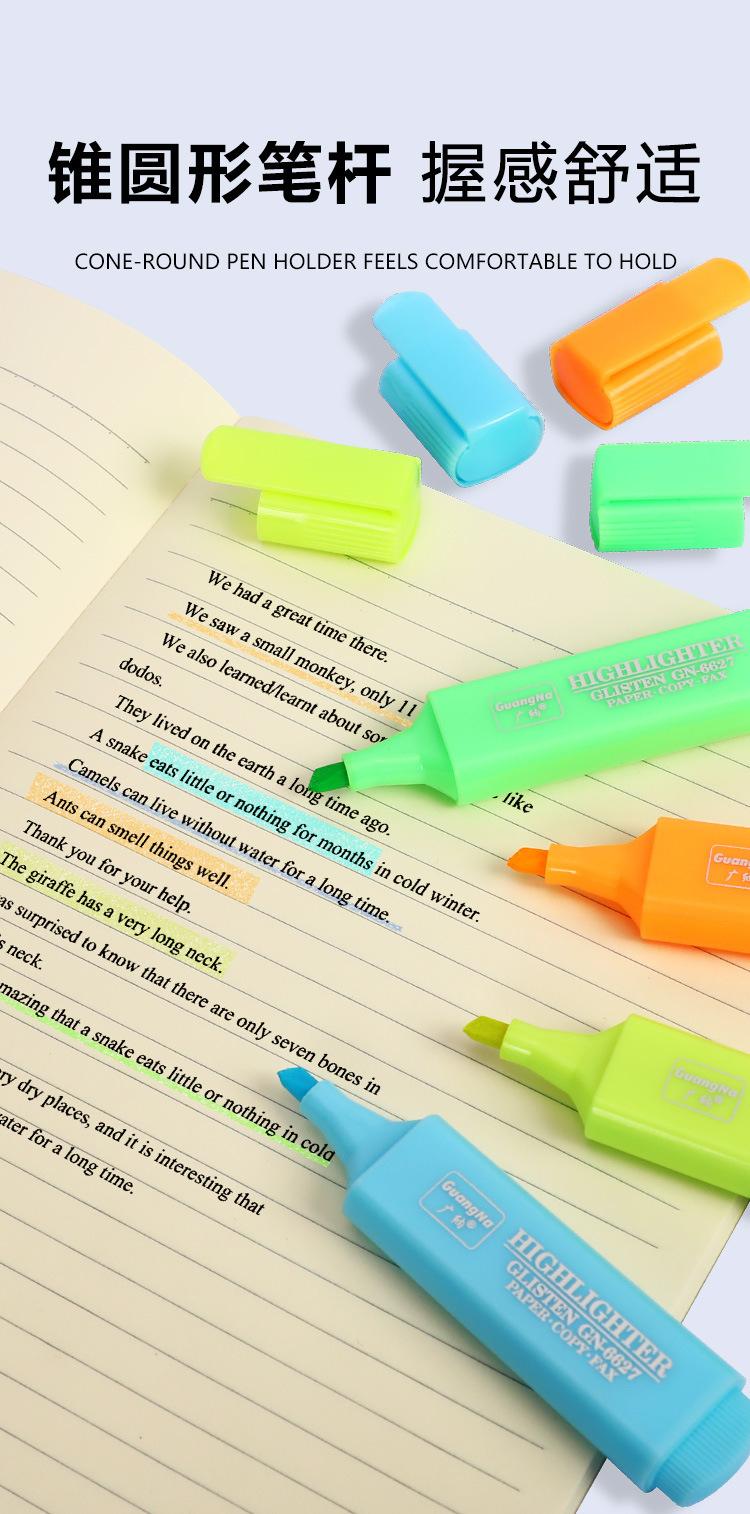 锥圆形笔杆 握感舒适
CONE-ROUND PEN HOLDER FEELS COMFORTABLE TO HOLD
We had a great time there.
We saw a small monkey, only 11
We also learned/learnt about
dodos.
They lived on the earth a long time ago.
like
A snake eats little or nothing for months in cold winter.
Camels can live without water for a long time.
Ants can smell things well.
Thank you for your help.
The giraffe has a very long neck.
surprised to know that there are only seven bones in
neck.
that a snake eats little or nothing in cold
dry places, and it is interesting that
for a long time.
GuangNa
广纳®
HIGHLIGHTER
GLISTEN GN-6627
PAPER·COPY·FAX
GuangNa
广纳
GuangNa
广纳®
HIGHLIGHTER
GLISTEN GN-6627
PAPER·COPY·FAX